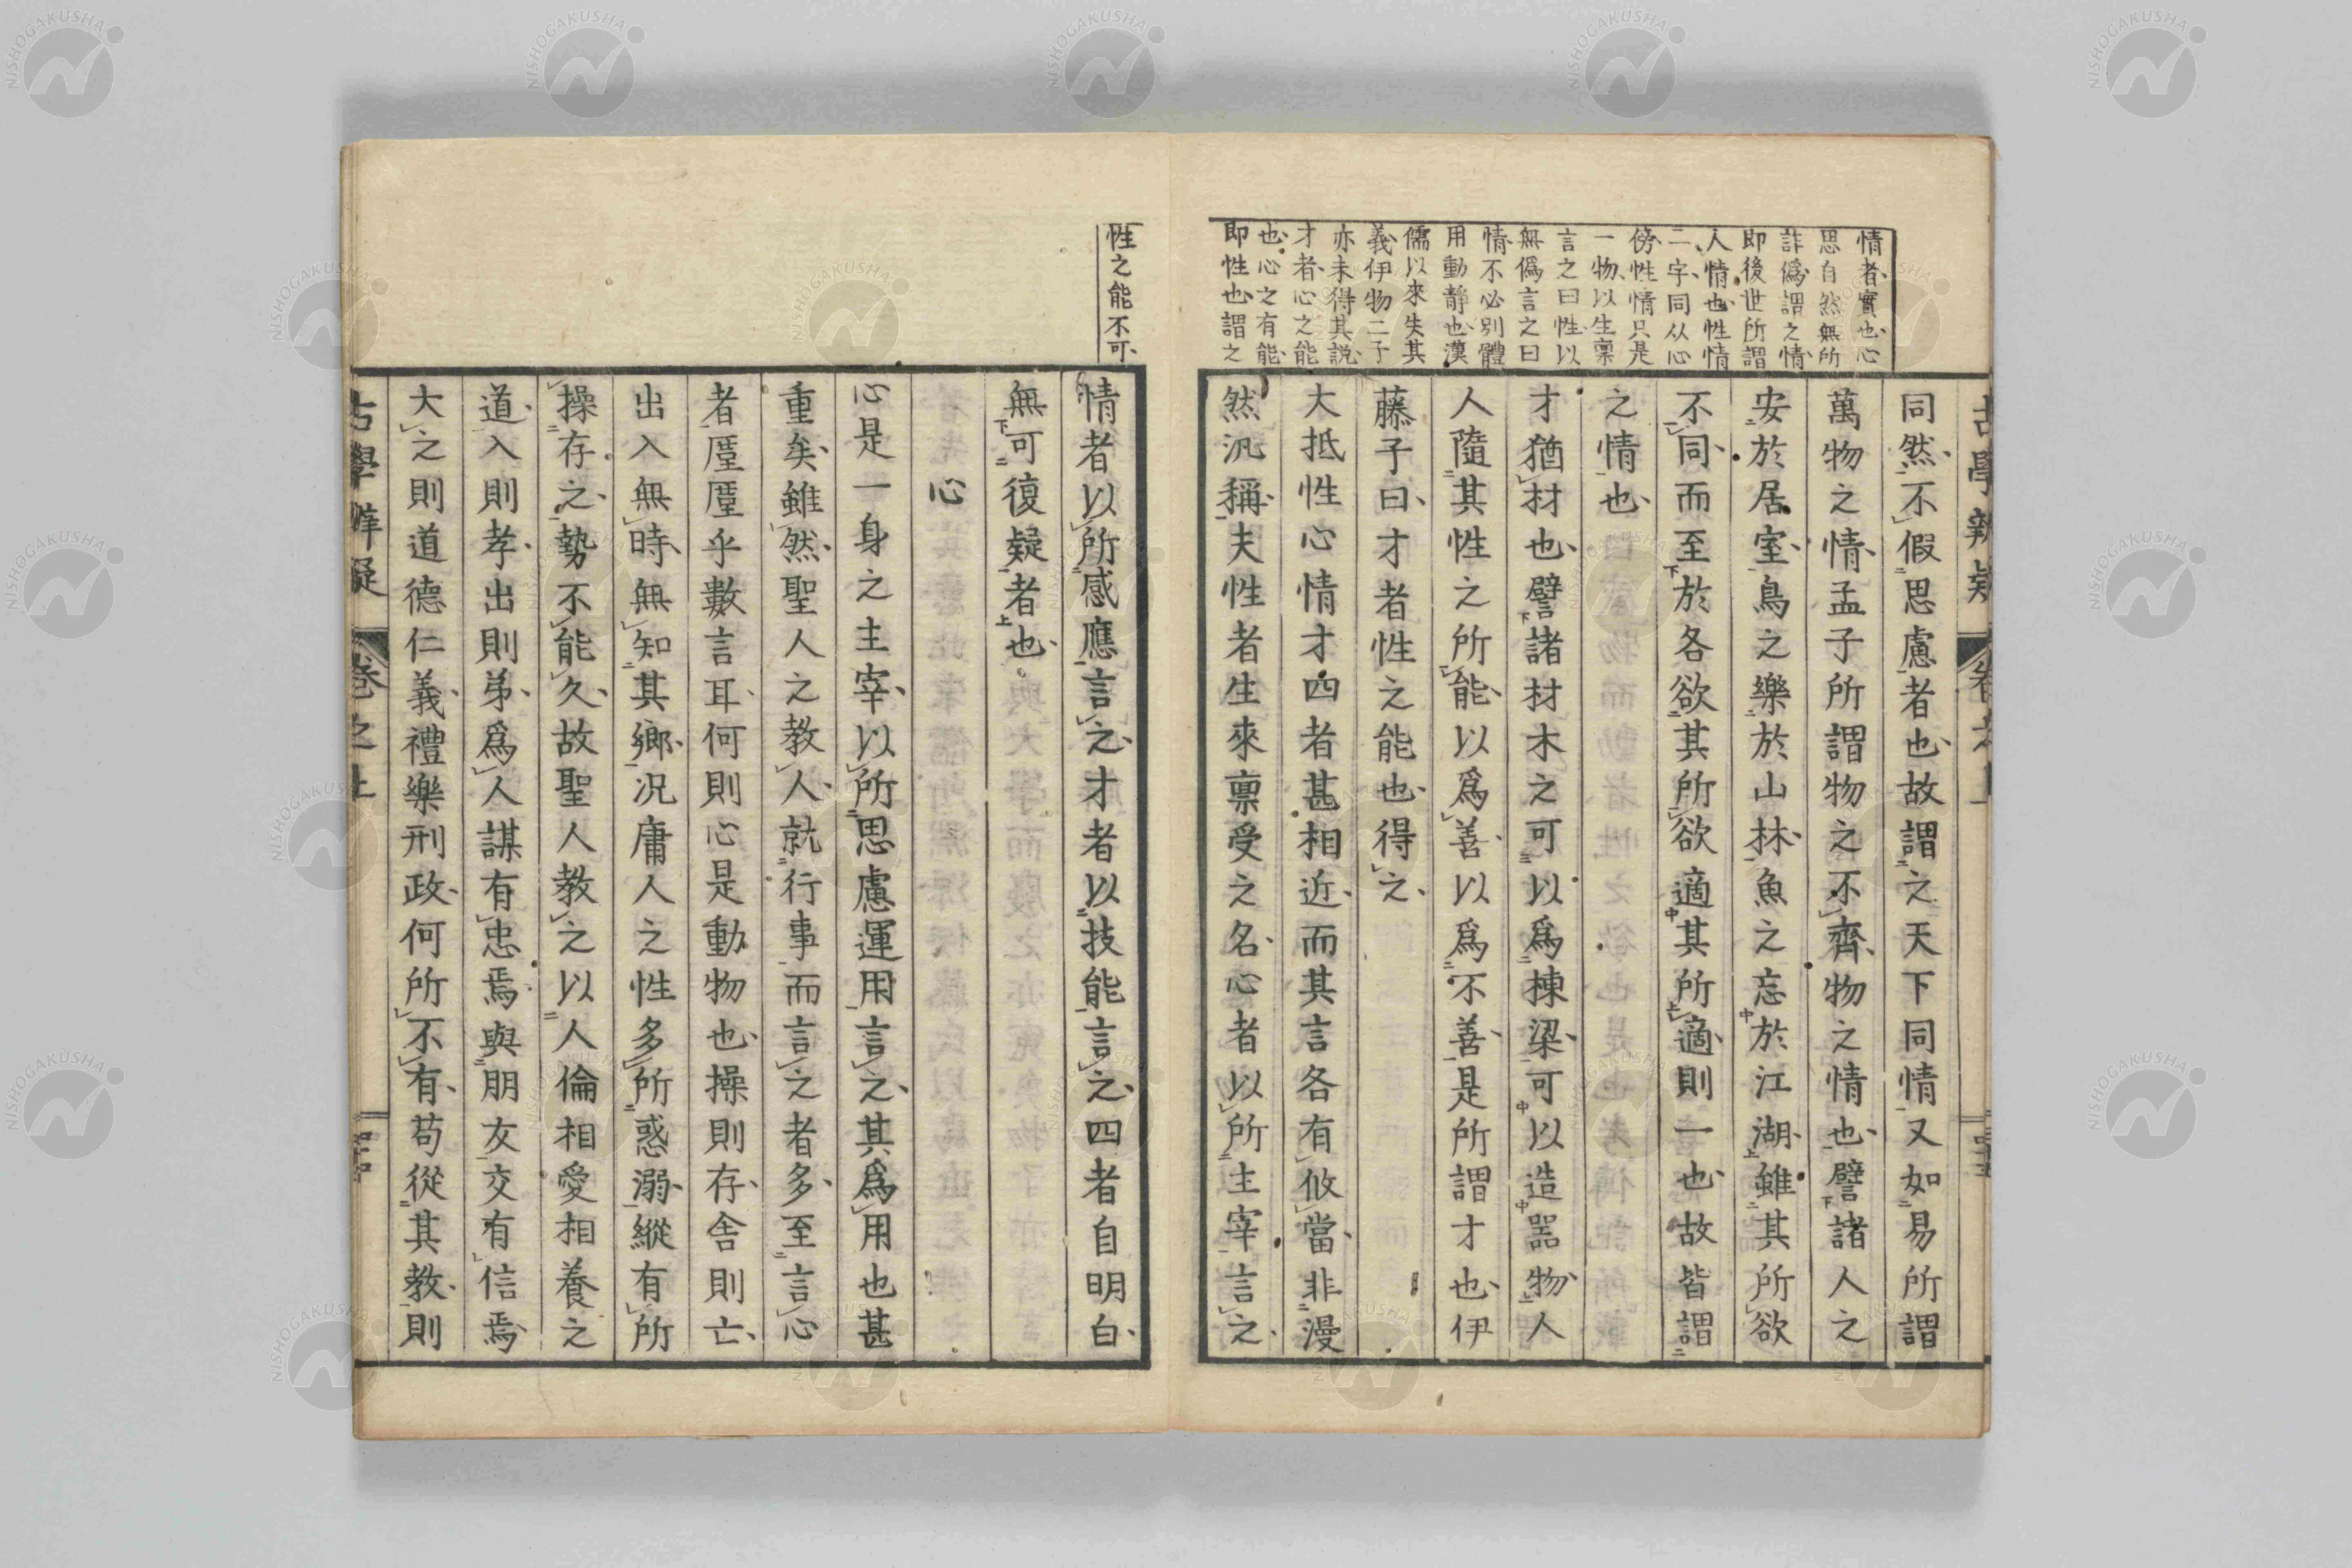 情者實也心
思自然無所
詐僞謂之情
即後世所謂
人情也性情
二字同从心
傍性情只是
一物以生稟
言之曰性以
無僞言之曰
情不必別體
用動靜也漢
儒以來失其
義伊物二子
亦未得其說
才者心之能
也心之有能
即性也謂之
同然不假思慮者也故謂之天下同情又如易所謂
萬物之情孟子所謂物之不齊物之情也譬諸人之
安於居室鳥之樂於山林魚之忘於江湖雖其所欲
不同而至於各欲其所欲適其所適則一也故皆謂
之情也
才猶材也譬諸材木之可以爲棟梁可以造噐物人
人隨其性之所能以爲善以爲不善是所謂才也伊
藤子曰才者性之能也得之
大抵性心情才四者甚相近而其言各有攸當非漫
然汎稱夫性者生來稟受之名心者以所主宰言之
性之能不可
情者以所感應言之才者以技能言之四者自明白
無可復疑者也
心
心是一身之主宰以所思慮運用言之其爲用也甚
重矣雖然聖人之教人就行事而言之者多至言心
者厪厪乎數言耳何則心是動物也操則存舍則亡
出入無時無知其鄉况庸人之性多所惑溺縱有所
操存之勢不能久故聖人教之以人倫相愛相養之
道入則孝出則弟爲人謀有忠焉與朋友交有信焉
大之則道德仁義禮樂刑政何所不有苟從其教則
古學辨疑 卷之上
NISHOGAKUSHA